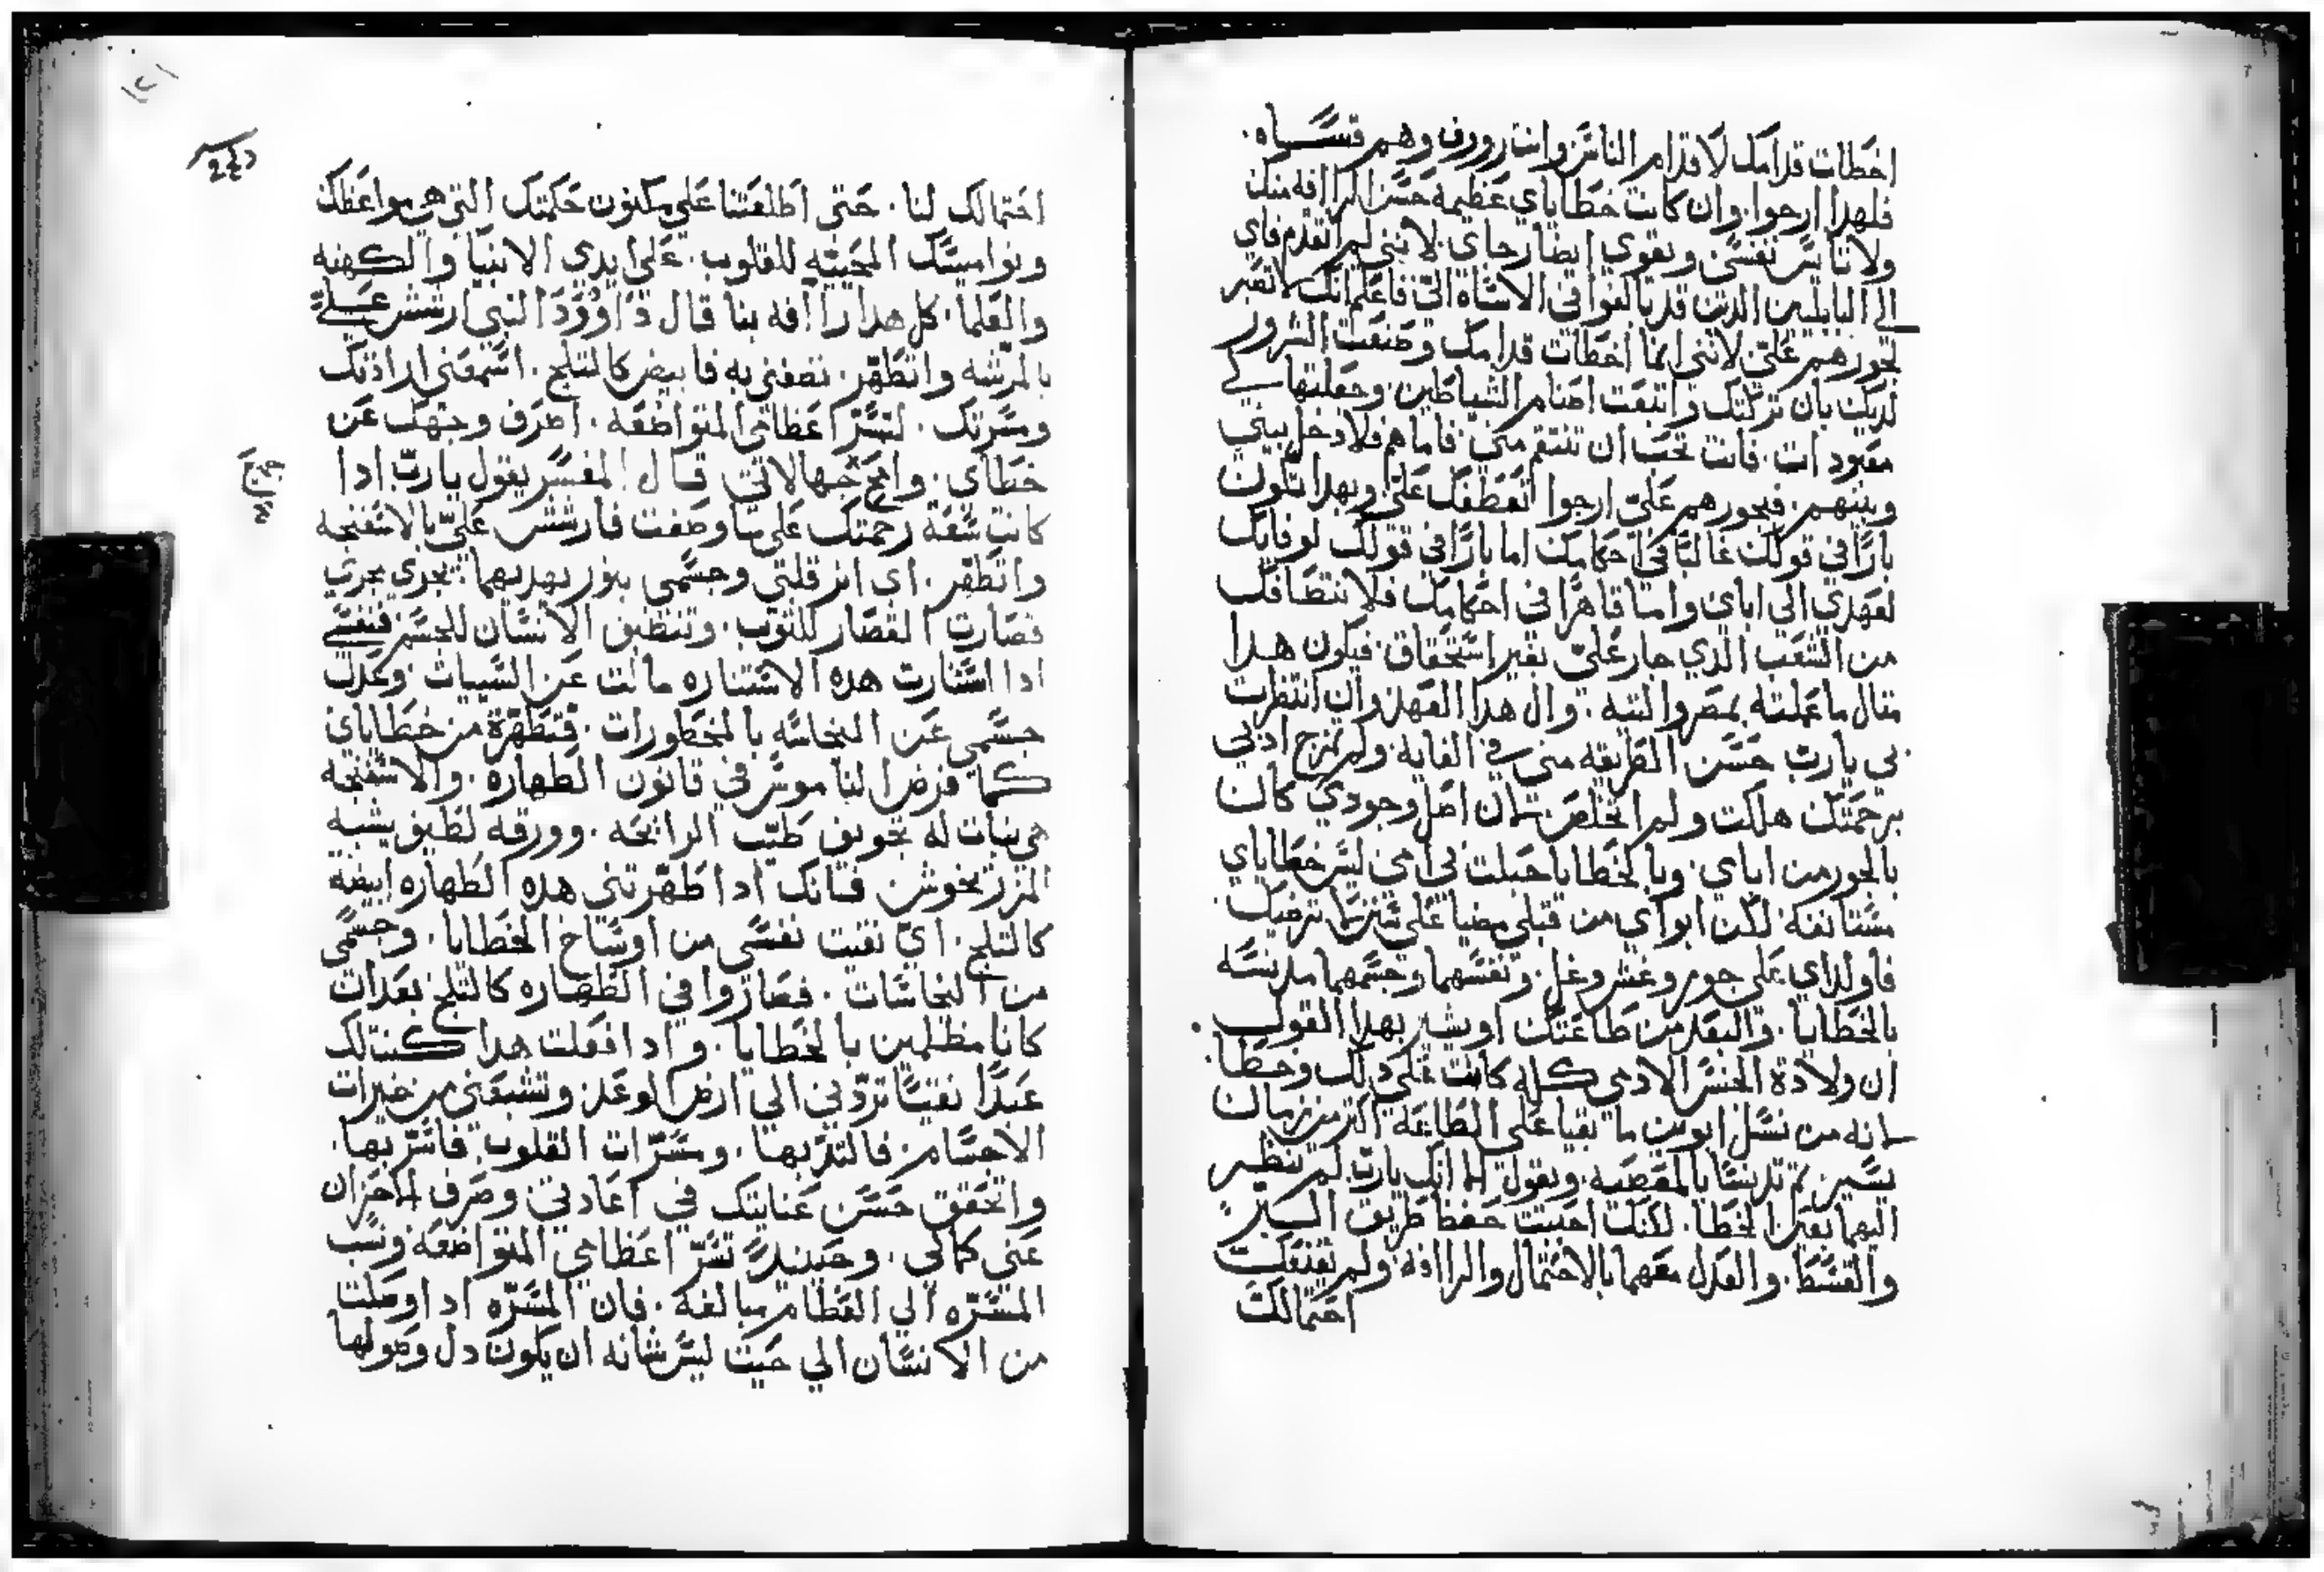 اخطات قدامك لا قدام الناس وانت رووف وهم قساه.
فلهدا ارجوا. وان كانت خطاياي عظيمه حسن الراافه منك
ولا تاىس نفسي ويقوي ايضا رجاي. لانني لم اتقدم فاي
الي البابليين الدين قد بالغوا في الاساه اليّ فاعلم انك لا تعبر
لجورهم عليّ لانني انما اخطات قدامك وصنعت الشرور
لديك بان تركتك واتبعت اصنام الشياطين. وجعلتها لي
معبودات. فانت تحب ان تنتقم مني. فاما هم فلا دخل بيني
وبينهم. فبجورهم عليّ ارجوا تعطفك عليّ وبهدا تكون
بارًا في قولك غالبًا في احكامك اما بارًا في قولك لوفايك
لعهدي الي اباي واما قاهرًا في احكامك فلانتصافك
من الشعب الدي جار عليّ بغير استحقاق. فيكون هدا
متال ما عملته بمصر والتيه. وال هدا العهد وان انتظرت
بي يارب حسن الطريقه مني في الغايه ولم تمزج ادبي
برحمتك هلكت ولم اتخلص لان اصل وجودي كان
بالجور من اباي. وبالخطايا حبلت بي امي ليس خطاياي
مستانفه. لكن ابواي من قبلي مضيا علي سنن لا ترضيك
فاولداي علي جور وغش وغل. ونفسهما وجسمهما مدنسه
بالخطايا. والبعد من طاعتك او يشير بهدا القول
ان ولادة الجنس الادمي كله كانت علي دلك وخطا
لانه من نسل ابوين ما بقيا علي الطاعه اكتر من زمان
يسير. تم تدنسا بالمعصيه. ويقول انك يارب لم تنظر
اليهما بعين الخطا. لكنك احببت حفظ طريق البر
والقسط. والعدل معهما بالاحتمال والراافه ولم يقنعك
احتمالك
احتمالك لنا. حتي اطلعتنا علي مكنون حكمتك التي هي مواعظك
ونواميسك المحييه للقلوب. علي ايدي الانبيا والكهنه
والعلما. كل هدا راافه بنا قال داوود النبي ارشش عليّ
بالمرشه واتطهر. تضعني به فابيض كالتلج. اسمعني لداذتك
ومسرتك. لتسرّ اعظامي المتواضعه. اصرف وجهك عن
خطاي. وامح جهالاتي قال المفسر يقول يارب ادا
كانت سعة رحمتك علي ما وصفت فارشش عليّ بالاسفنجه
واتطهر. اي انر قلبي وجسمي بنور يهديهما. يجري مجري
قصارت القصار للتوب. وتنطبق الانسان للجسم فنفسي
ادا استنارت هده الاستناره مالت عن السيات وعدل
جسمي عن النجاسه بالمحظورات. فتطهرة من خطاياي
كما فرض لنا موسي في قانون الطهاره. والاسفنجه
هي نبات له تجويف طيّب الرايحه. وورقه لطيف يشبه
المرزنجوش فانك ادا طهرتني هده الطهاره ابيضه
كالتلج. اي نقيت نفسي من اوساخ الخطايا. وجسمي
من النجاسات. فصاروا في الطهاره كالتلج بعد ان
كانا مظلمين بالخطايا. وادا فعلت هدا كنت لك
عبدًا نقيًا تردّني الي ارض الوعد وتشبعني من خيرات
الاجسام. فالتدّ بها. ومسرّات القلوب. فاسرّ بها.
واتحقق حسن عنايتك في اعادتي وصرف الاحزان
عني كمالي. وحينيد تسرّ اعظامي المتواضعه ونسب
المسرّه الي العظام مبالغه. فان المسرّه ادا وصلت
من الانسان الي حيت ليس شانه ان يكون دل وصولها